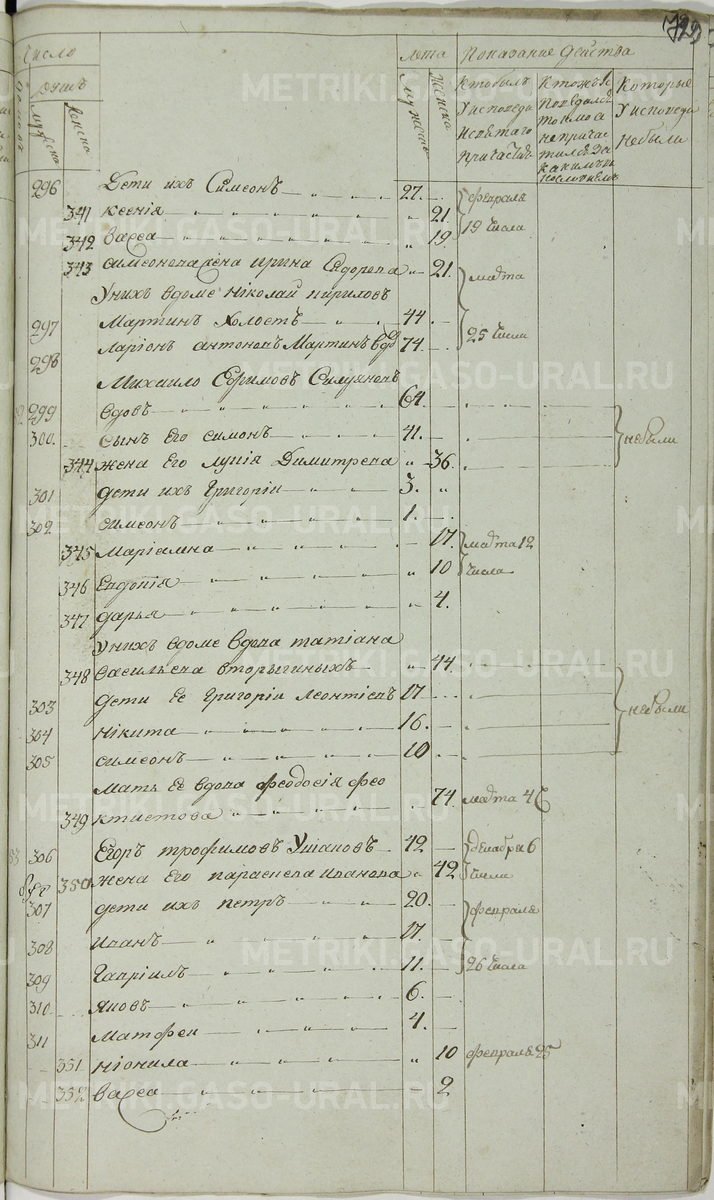 Число
душъ
мужеска
женска
лета
мужеска
женска
Показание действа
Кто былъ
у исповеди
и святаго
причастия
Которые
у исповеди
небыли
296 Дети ихъ Симеонъ 27. февраля
341 Ксенiя 21 19 числа
342 Васса 19
343 Симеонова жена ирина Сидорова 21. марта
У нихъ вдоме Нiколай кириловъ
297 Мартинъ Холостъ 44 25 числа
298 Ларiонъ антоновъ Мартинъ вдо 74.
Михаило Ефимовъ Силуяновъ
299 вдовъ 64.
300. сынъ Его симонъ 41. небыли
344 жена Его лукiя Димитрева 36.
301 дети ихъ Григорiи 3.
302 симеонъ 1.
345 Марiамна 17. марта 12
346 Евдокiя 10 числа
347 дарья 4.
у нихъ вдоме вдова татiана
348 васильева вторыгиныхъ 44
303 дети Ее Григорiи Леонтiевъ 17 небыли
304 Нiкита 16.
305 симеонъ 10
мать Ее вдова феодосiя фео
349 ктистова 74. марта 4
306 Егоръ трофимовъ Ушаковъ 42 Декабря 6
350 жена Его параскева иванова 42 числа
307 дети ихъ петръ 20. февраля
308 иванъ 17.
309 Гаврiилъ 11. 26 числа
310. яковъ 6.
311 матфеи 4.
351. нiонила 10 февраля 25
352 васса 2
METRIKI.GASO-URAL.RU